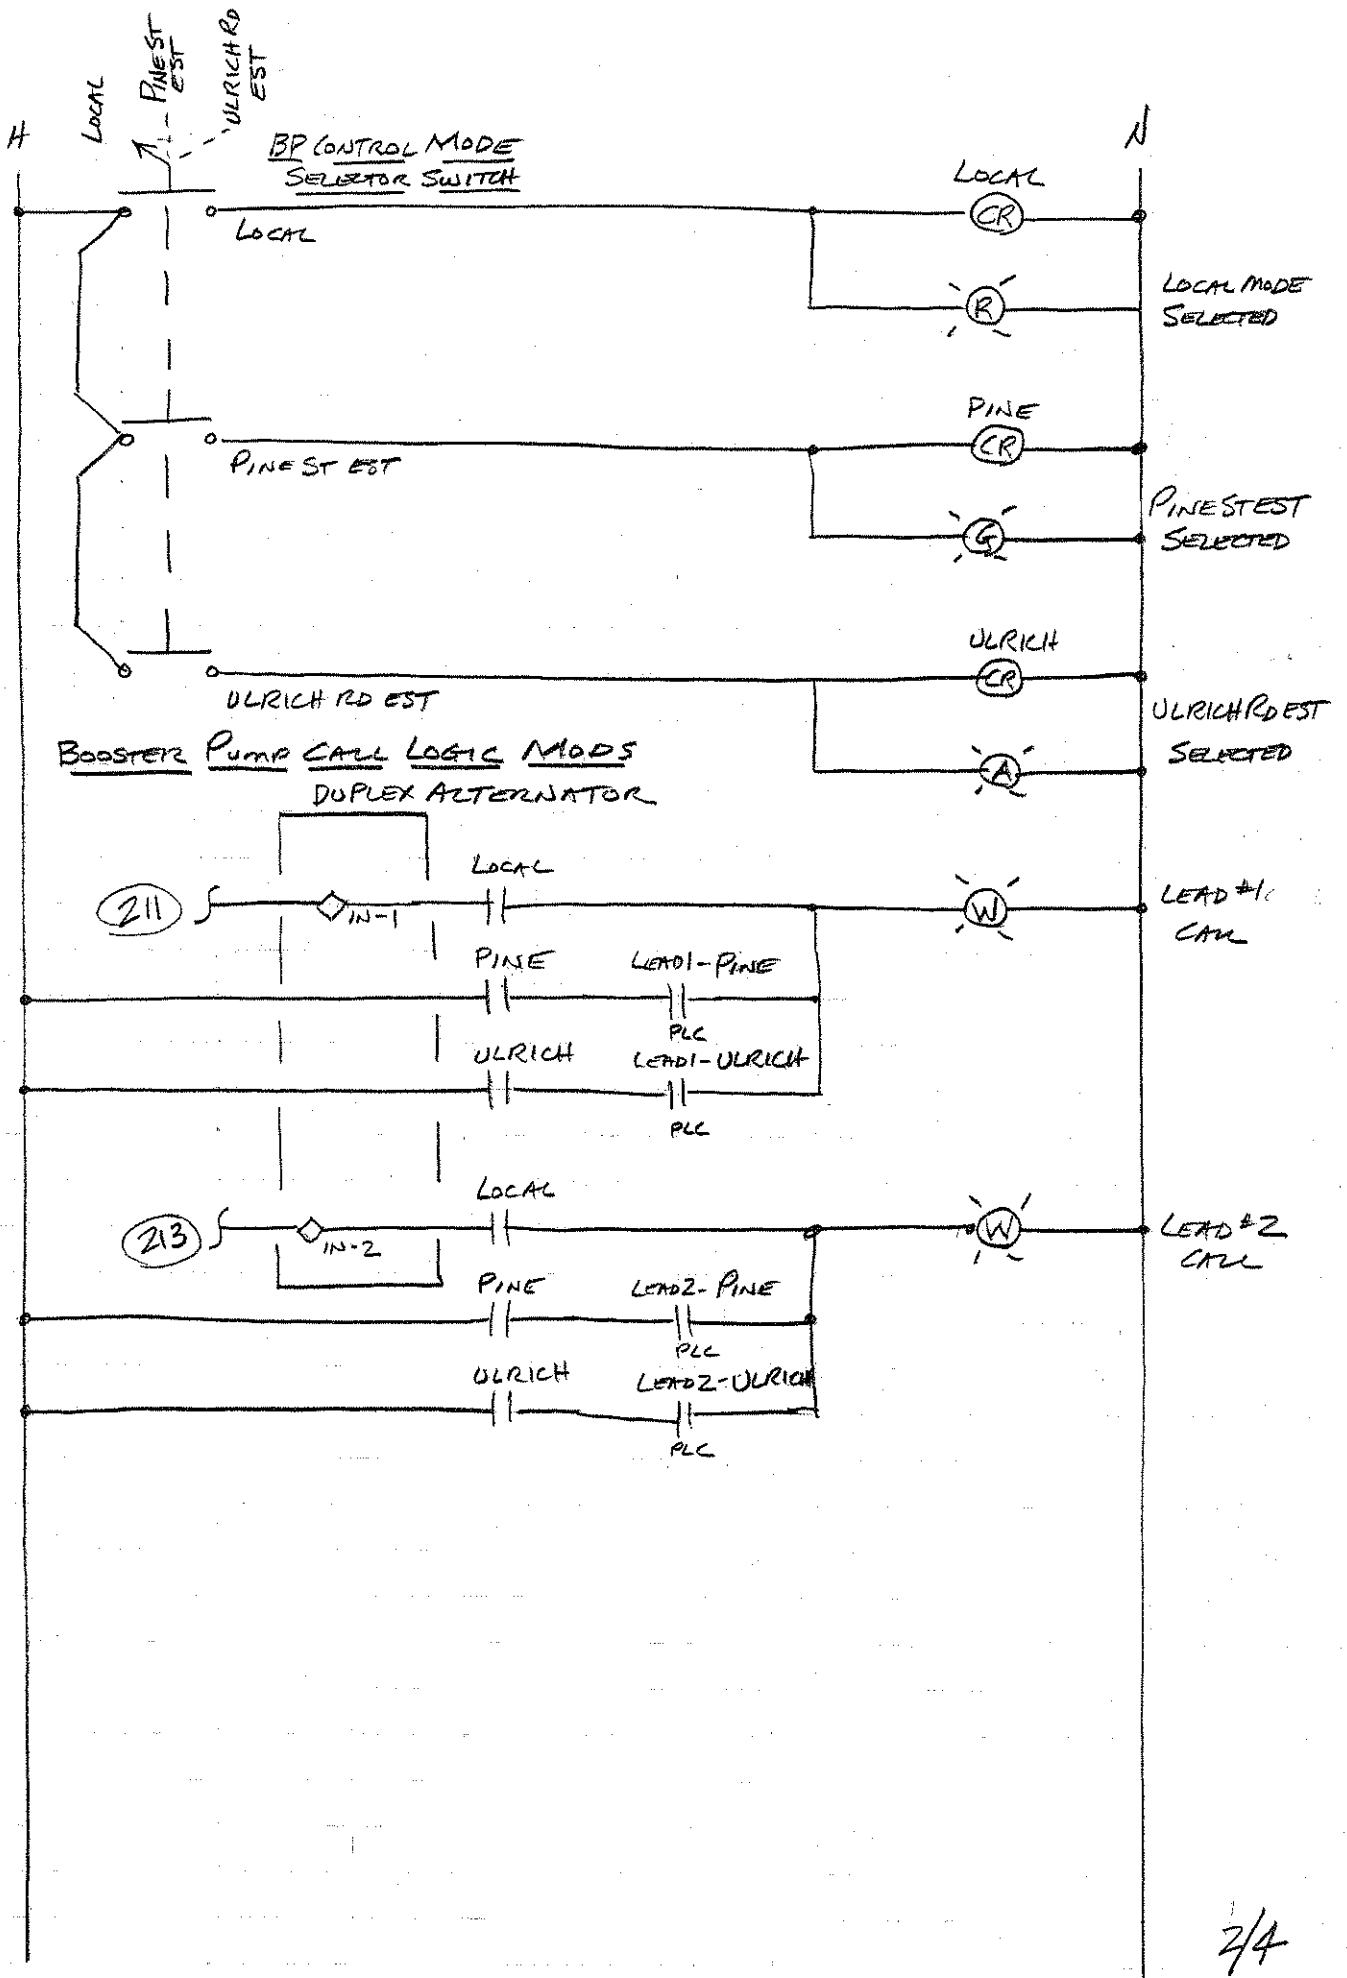 H
LOCAL
PINE ST
EST
ULRICH RD
EST
N
BP CONTROL MODE
SELECTOR SWITCH
LOCAL
LOCAL
CR
R
LOCAL MODE
SELECTED
PINE ST EST
PINE
CR
G
PINE ST EST
SELECTED
ULRICH RD EST
ULRICH
CR
A
ULRICH RD EST
SELECTED
BOOSTER PUMP CALL LOGIC MODS
DUPLEX ALTERNATOR
211
IN-1
LOCAL
W
LEAD #1
CALL
PINE
LEAD1-PINE
PLC
ULRICH
LEAD1-ULRICH
PLC
213
IN-2
LOCAL
W
LEAD #2
CALL
PINE
LEAD2-PINE
PLC
ULRICH
LEAD2-ULRICH
PLC
2/4